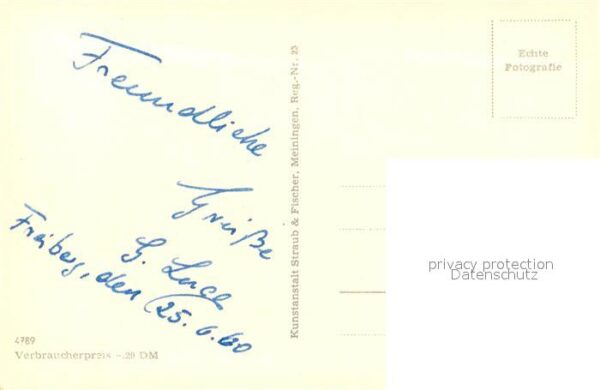 Freundliche
Grüße
G.
Freiberg, den 25.6.60
4789
Verbraucherpreis -.20 DM
Kunstanstalt Straub & Fischer, Meiningen, Reg.-Nr. 23
Echte
Fotografie
privacy protection
Datenschutz